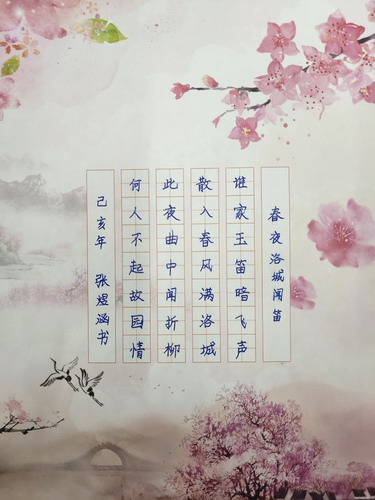 春夜洛城闻笛
谁家玉笛暗飞声
散入春风满洛城
此夜曲中闻折柳
何人不起故园情
己亥年 张煜涵书